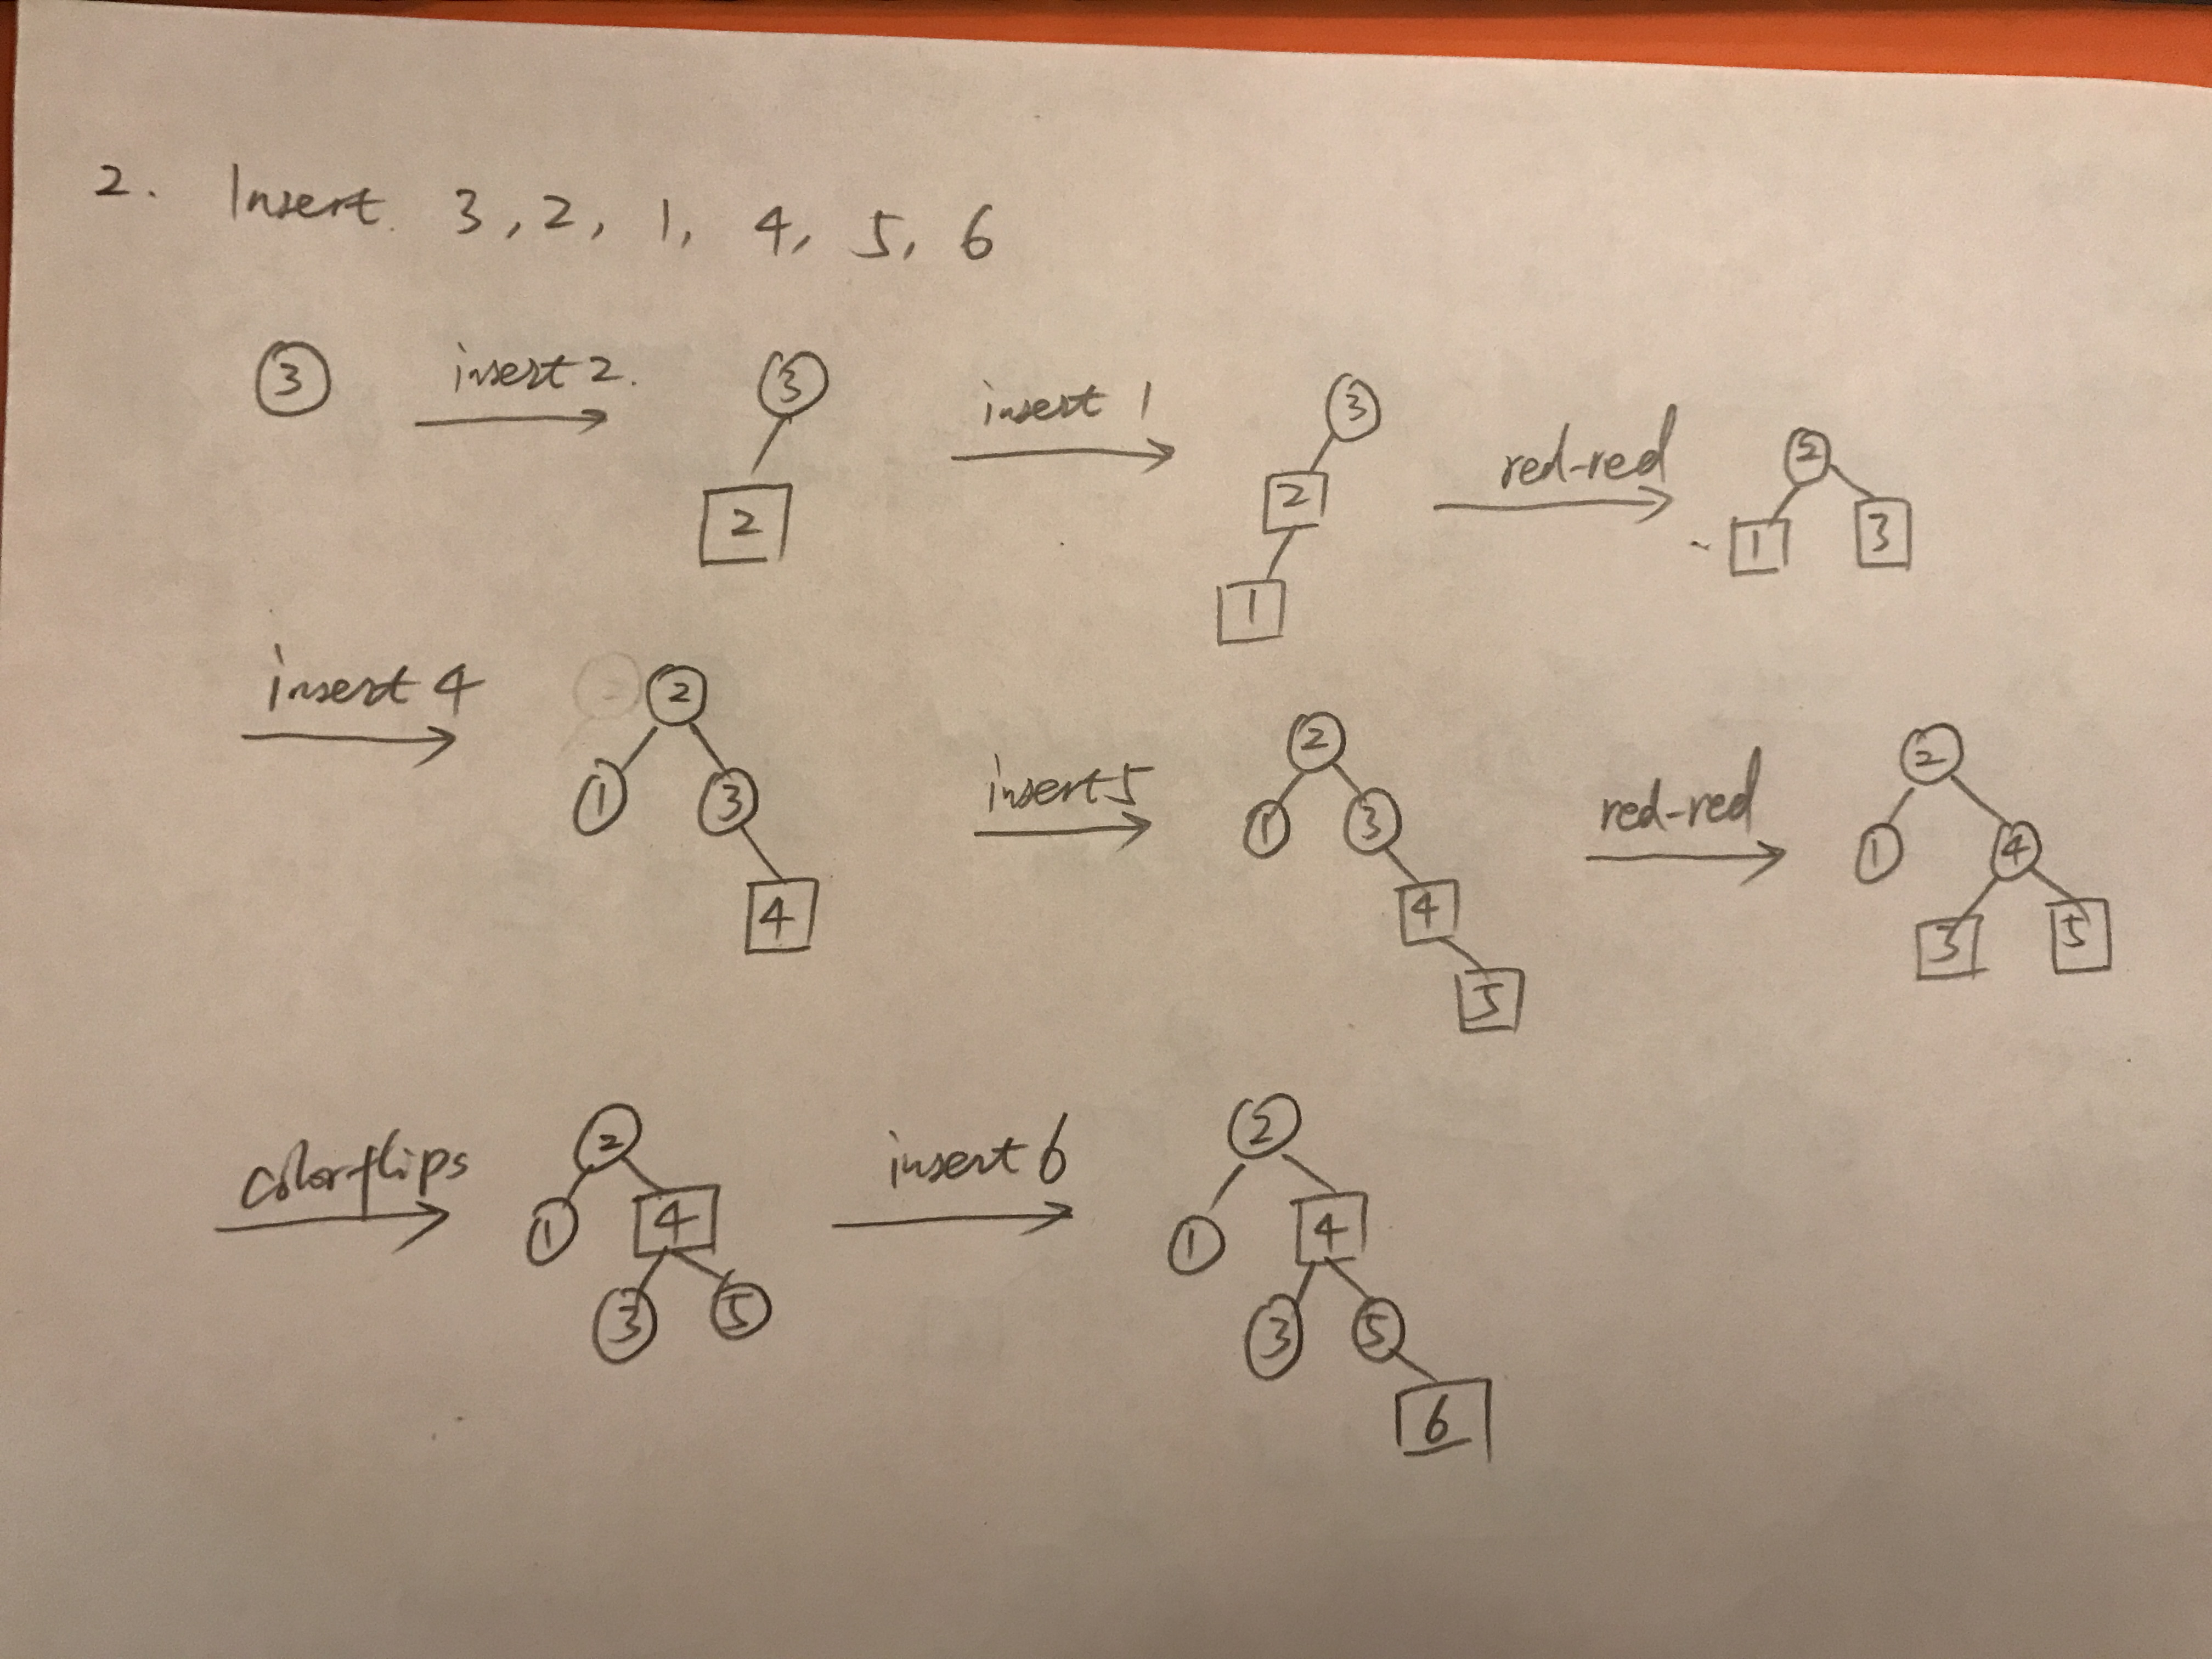 2. Insert 3, 2, 1, 4, 5, 6
3 insert 2. 3 2 insert 1 3 2 1 red-red 2 1 3
insert 4 2 1 3 4 insert 5 2 1 3 4 5 red-red 2 1 4 3 5
color flips 2 1 4 3 5 insert 6 2 1 4 3 5 6